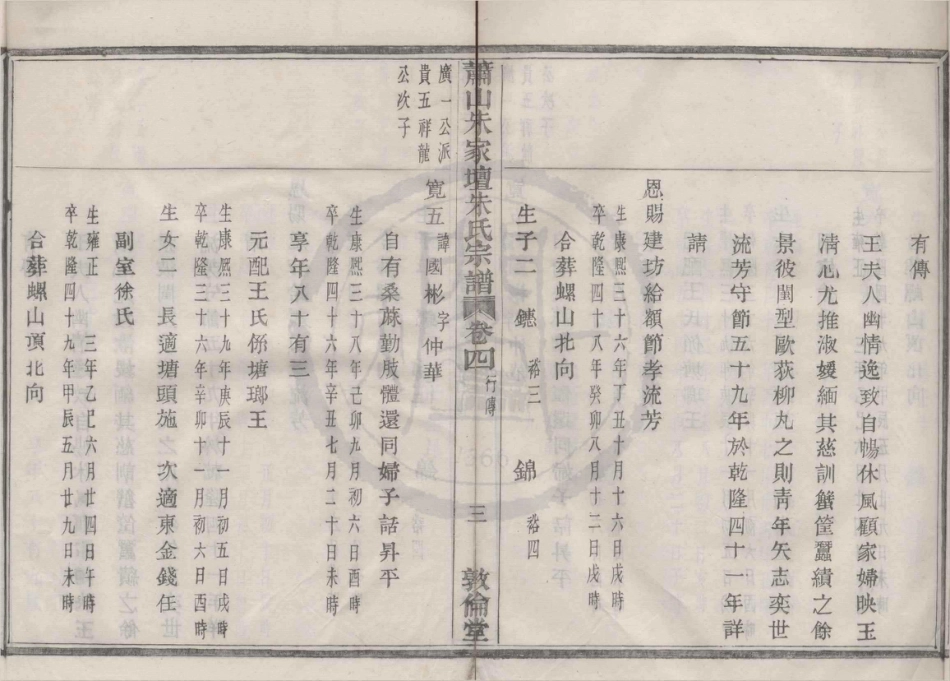 有傳
王夫人幽情逸致自暢休風顧家婦映玉
清心尤推淑媛緬其慈訓蟹筐蠶績之餘
景彼閨型歐荻柳丸之則靑年矢志奕世
流芳守節五十九年於乾隆四十一年詳
請
恩賜建坊給額節孝流芳
生康熙三十六年丁丑十月十六日戌時
卒乾隆四十八年癸卯八月十二日戌時
合葬螺山北向
生子二 鑣 裕三 錦 裕四
蕭山朱家壇朱氏宗譜 卷四 行傳 三 敦倫堂
廣一公派
貴五祥龍
公次子
寬五 諱國彬字仲華
自有桑蔴勤肢體還同婦子話昇平
生康熙三十八年己卯九月初六日酉時
卒乾隆四十六年辛丑七月二十日未時
享年八十有三
元配王氏係塘瑯王
生康熙三十九年庚辰十一月初五日戌時
卒乾隆三十六年辛卯十一月初六日酉時
生女二長適塘頭施 次適東金錢任
副室徐氏
生雍正 三年乙巳六月廿四日午時
卒乾隆四十九年甲辰五月廿九日未時
合葬螺山頂北向